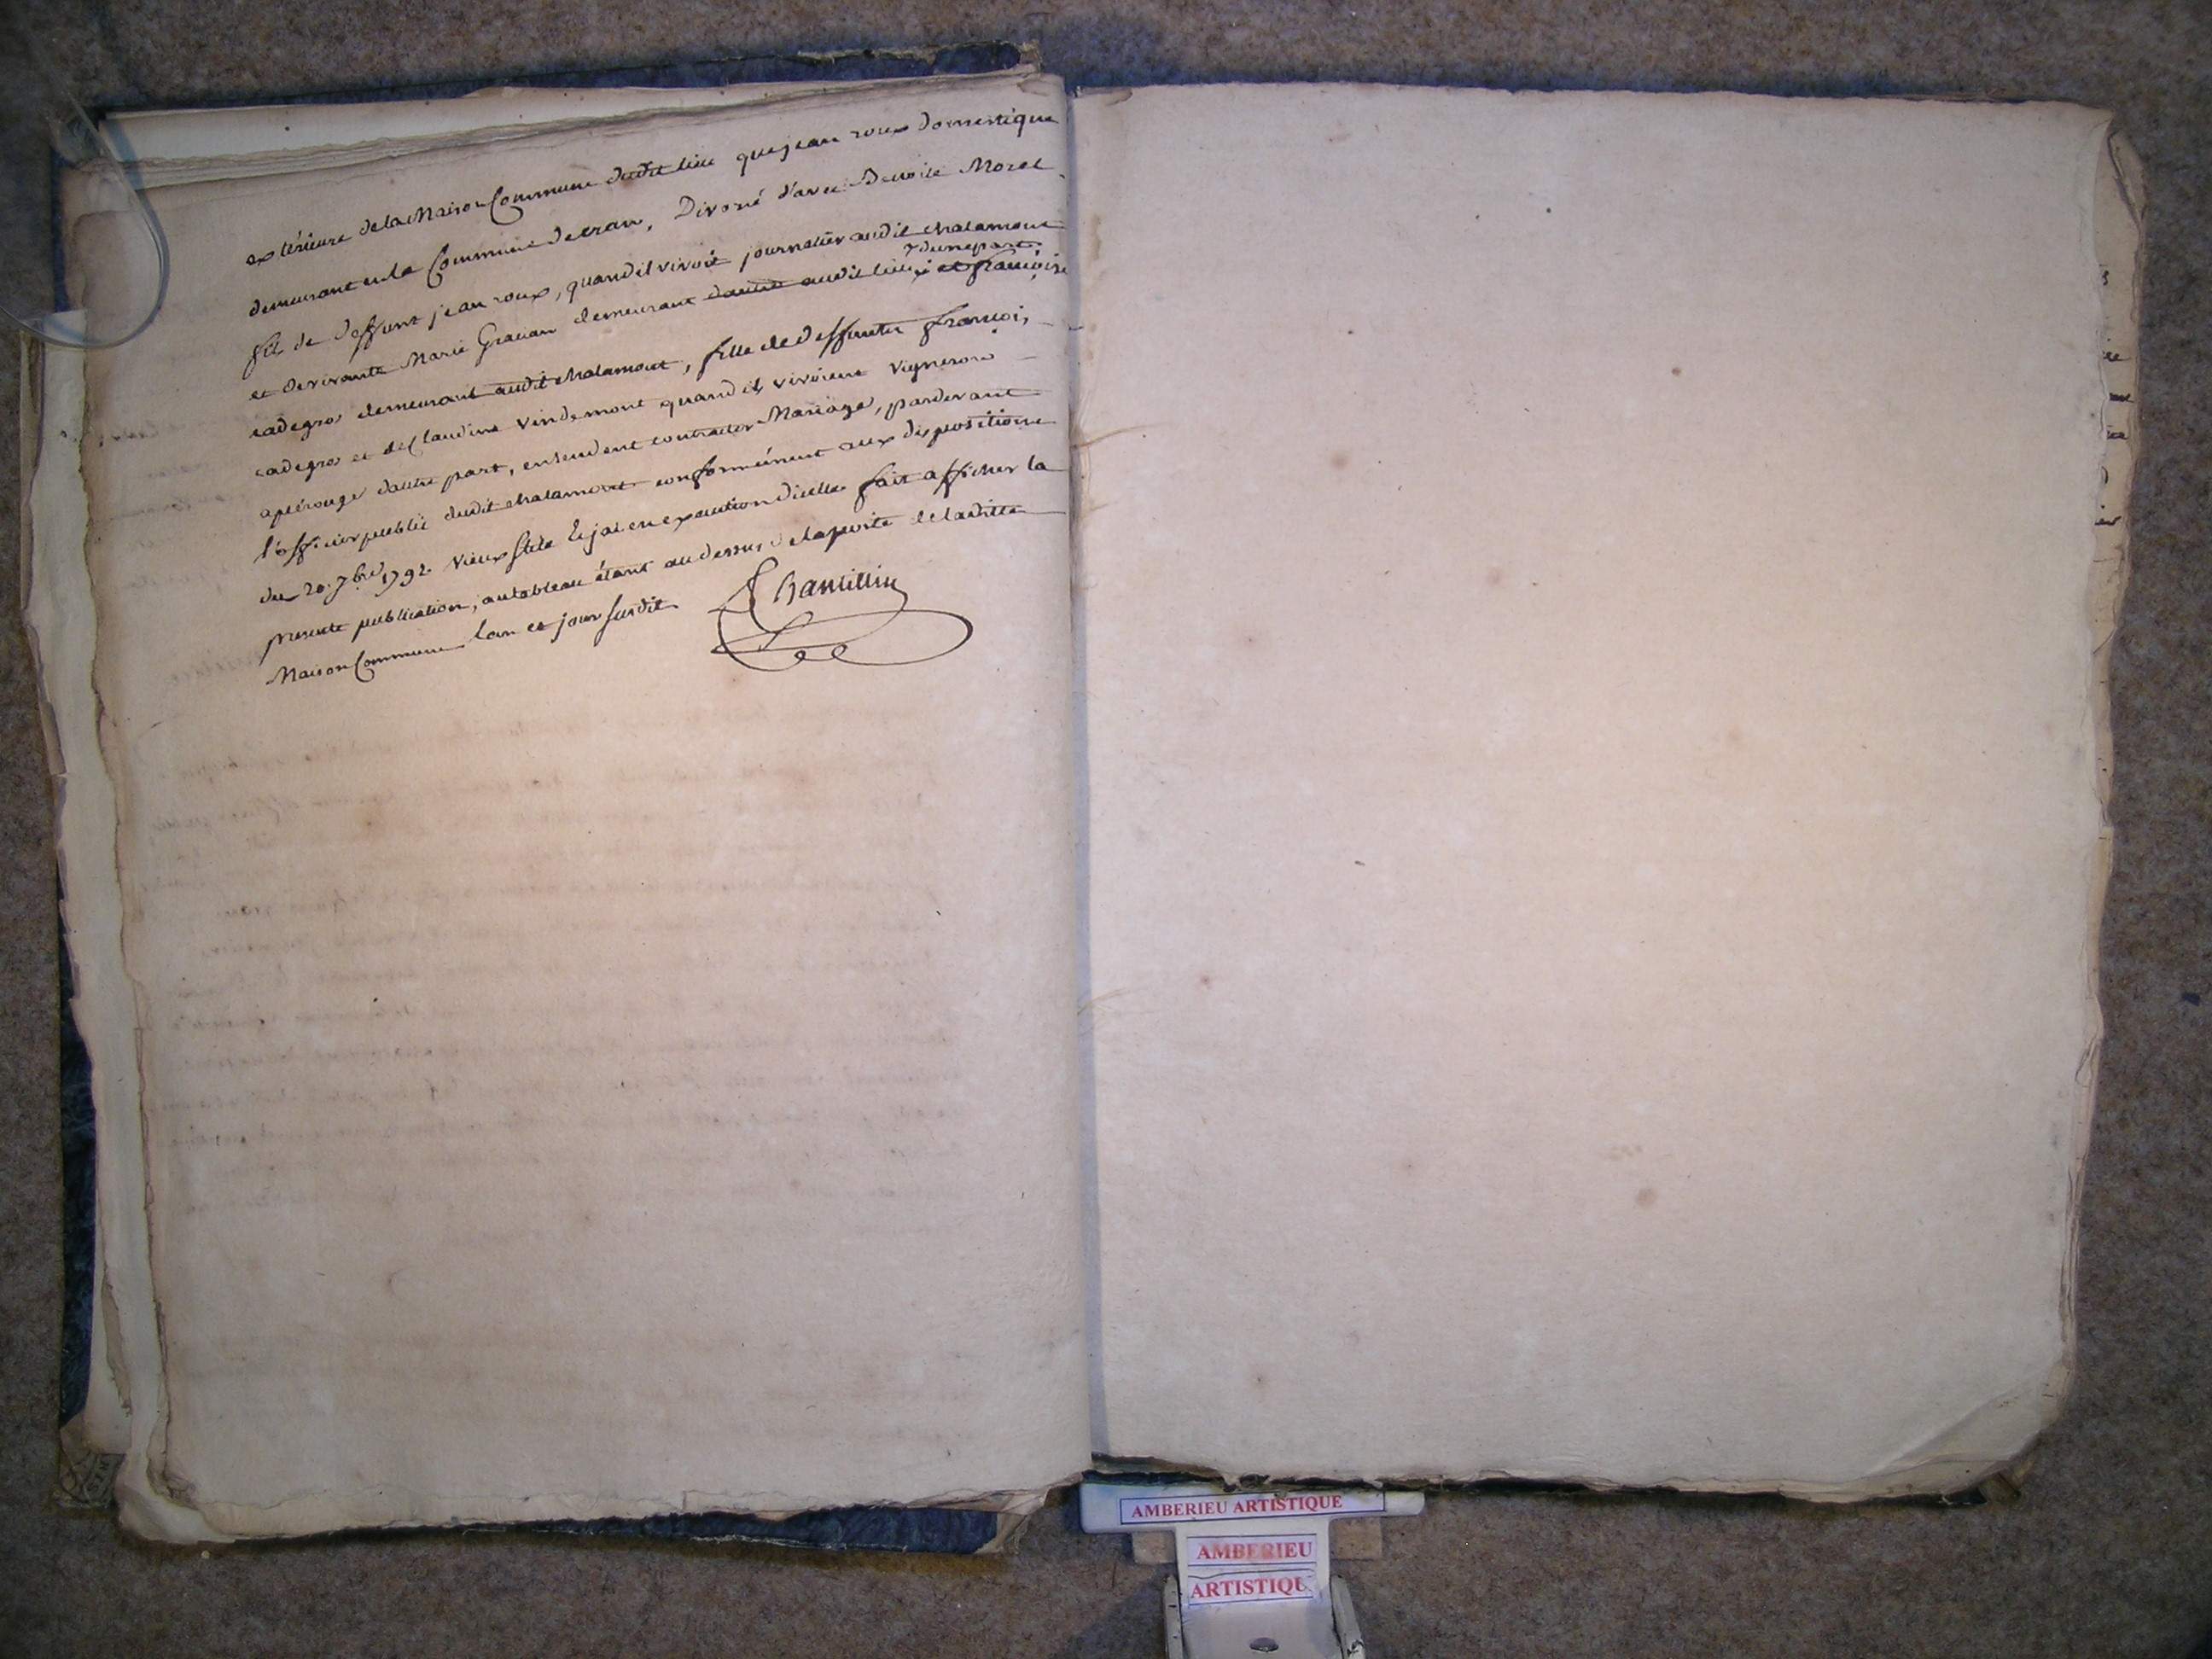 extérieure de la Maison Commune dudit lieu que jean roux domestique
demeurant en la Commune de cran, Divorsé d'avec Benoite Morel
fils de deffunt jean roux, quand il vivoit journalier audit chalamont
d'une part
et de vivante Marie demeurant audit lieu et françoise
cadegros demeurant audit chalamont, fille de deffunts françois
cadegros et de Claudine Vindemont quand ils vivoient Vignerons
a pérouge d'autre part, entendent contracter Mariage, pardevant
l'officier public dudit chalamont conformément aux dispositions
du 20 7bre 1792 Vieux stile Et jai en execution d'icelle fait afficher la
presente publication, au tableau étant au dessus de la porte de laditte
Maison Commune lan et jour susdit
AMBERIEU ARTISTIQUE
AMBERIEU
ARTISTIQU